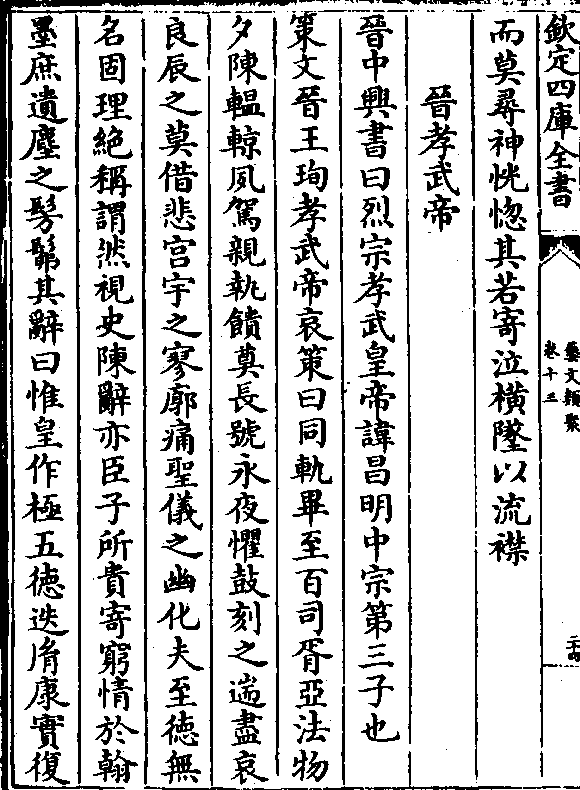 欽定四庫全書
藝文類聚
卷十三
二古
而莫尋神恍惚其若寄泣橫墜以流襟
晉孝武帝
晉中興書曰烈宗孝武皇帝諱昌明中宗第三子也
策文晉王珣孝武帝哀策曰同軌畢至百司胥亞法物
夕陳轀輬夙駕親執饋奠長號永夜懼鼓刻之遄盡哀
良辰之莫借悲宫宇之寥廓痛聖儀之幽化夫至德無
名固理絶稱謂然視史陳辭亦臣子所貴寄窮情於翰
墨庶遺塵之髣髴其辭曰惟皇作極五德迭脩康實復